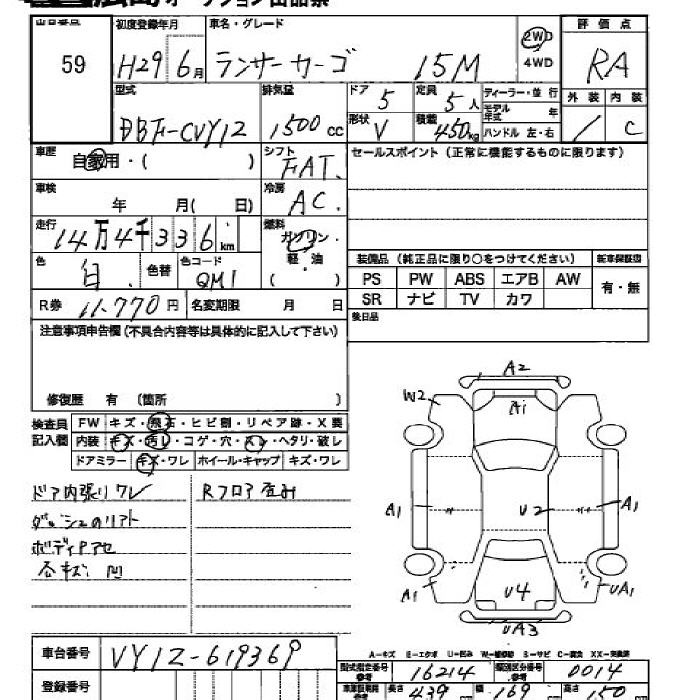 出品番号 59
初度登録年月 H29 6月
車名・グレード ランサーカーゴ 15M
2WD
4WD
評価点 RA
外装 /
内装 C
型式 DBF-CVY12
排気量 1500 CC
ドア 5
定員 5人
形状 V
積載 450kg
ディーラー・並行
モデル年式 年
ハンドル 左・右
車歴 自家用・( )
シフト FAT.
セールスポイント(正常に機能するものに限ります)
車検 年 月( 日)
冷房 AC.
走行 14万4千336km
燃料 ガソリン・
軽・油
( )
色 白.
色替
色コード QM1
装備品(純正品に限り○をつけてください)
新車保証書
PS PW ABS エアB AW
SR ナビ TV カワ
有・無
R券 11.770円
名変期限 月 日
後日品
注意事項申告欄(不具合内容等は具体的に記入して下さい)
修復歴 有 (箇所 )
検査員記入欄
FW キズ・飛石・ヒビ割・リペア跡・X要
内装 キズ・汚レ・コゲ・穴・スレ・ヘタリ・破レ
ドアミラー キズ・ワレ ホイール・キャップ キズ・ワレ
ドア内張リワレ
Rフロア歪み
ダッシュのリアト
ボディPアセ
各キズ 凹
A2
W2
A1
A1
U2
A1
A1
U4
UA1
UA3
A-キズ E-エクボ U-凹み W-補修跡 S-サビ C-腐食 XX-交換済
車台番号 VY12-619369
型式指定番号 参考 16214
類別区分番号 参考 0014
登録番号
長さ 439 cm
幅 169 cm
高さ 150 cm